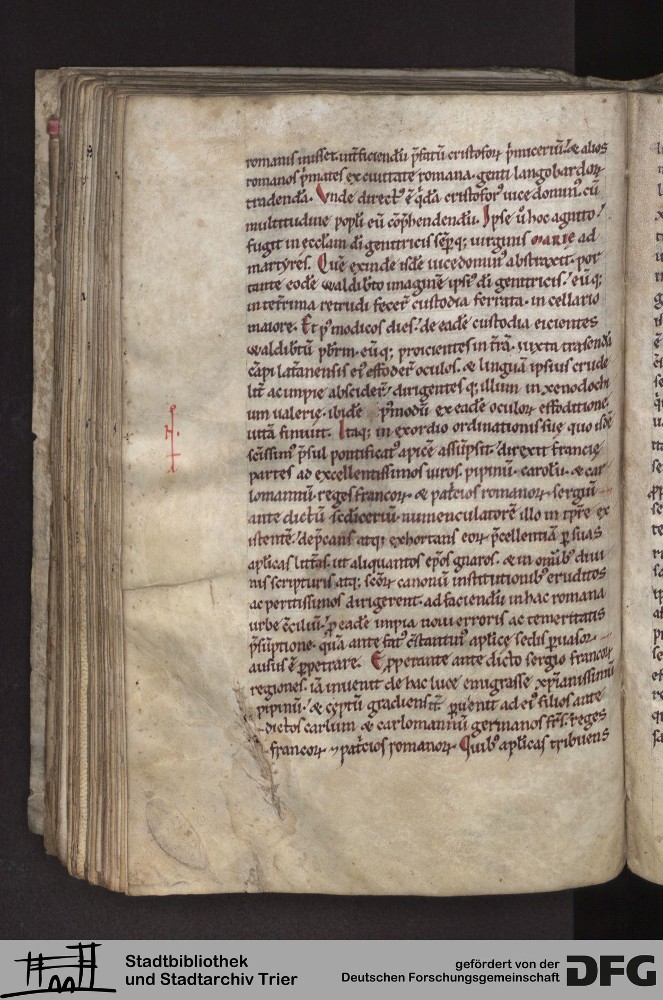 romanis misset. interficiendū p̄fatū cristoforū p̄miceriū. & alios
romanos p̄mates ex civitate romana. genti langobardoꝝ
tradendā. Unde direct᷒ ē q̄dā cristofor᷒ vice domin᷒. cū
multitudine populi eū cōp̄hendendū. Ipse ū hoc agnito.
fugit in eccl̄am dī genitricis sēp̄q; virginis MARIE ad
martyres. Quē exinde isdē vicedomin᷒ abstraxit. por
tante eodē Waldib̄to imaginē ipsi᷒ dī genitricis. eūq;
in tet̄rima retrudi fecer̄ custodia ferrata. in cellario
maiore. Et p᷒ modicos dies. de eadē custodia eicientes
Waldib̄tū pb̄rm. eūq; proicientes in t̄ra. iuxta trasendā
cāpi lat̄anensis ei᷒ effoder̄ oculos. & linguā ipsius crude
lit̄ ac impie abscider̄. dirigentes q; illum in xenodochi
um valerie. ibidē p᷒modū ex eadē oculoꝝ effoditione.
vitā finivit. Itaq; in exordio ordinationis suę quo isdē
sc̄issim᷒ p̄sul pontificat᷒ apicē assūpsit. direxit francię
partes ad excellentissimos viros. pipinū. carolū. & car
lomannū. reges francoꝝ. & pat̄cios romanoꝝ. sergiū
ante dictū sc̄diceriū. numenculatorē illo in tp̄re ex
istentē. dep̄cans atq; exhortans eoꝝ p̄cellentiā ꝑ suas
aplicas litt̄as. ut aliquantos ep̄os gnaros. & in om̄ib᷒ divi
nis scripturis atq; sc̄oꝝ canonū institutionib᷒ eruditos
ac peritissimos dirigerent. ad faciendū in hac romana
urbe c̄ciliū. ꝓ eadē impia novi erroris ac temeritatis
p̄sūptione. quā ante fat᷒ c̄stantin᷒ aplicę sedis ꝑvasor.
ausus ē ꝑpetrare. Eꝓperante ante dicto sergio francoꝝ
regiones. iā invenit de hac luce emigrasse xp̄ianissimū
pipinū. & ceptū gradiens it̄. ꝑvenit ad ei᷒ filios ante
dictos carlum & carlomannū germanos fr̄s. reges
francoꝝ ⁊ pat̄cios romanoꝝ. Quib᷒ aplicas tribuens
Stadtbibliothek
und Stadtarchiv Trier
gefördert von der
Deutschen Forschungsgemeinschaft
DFG